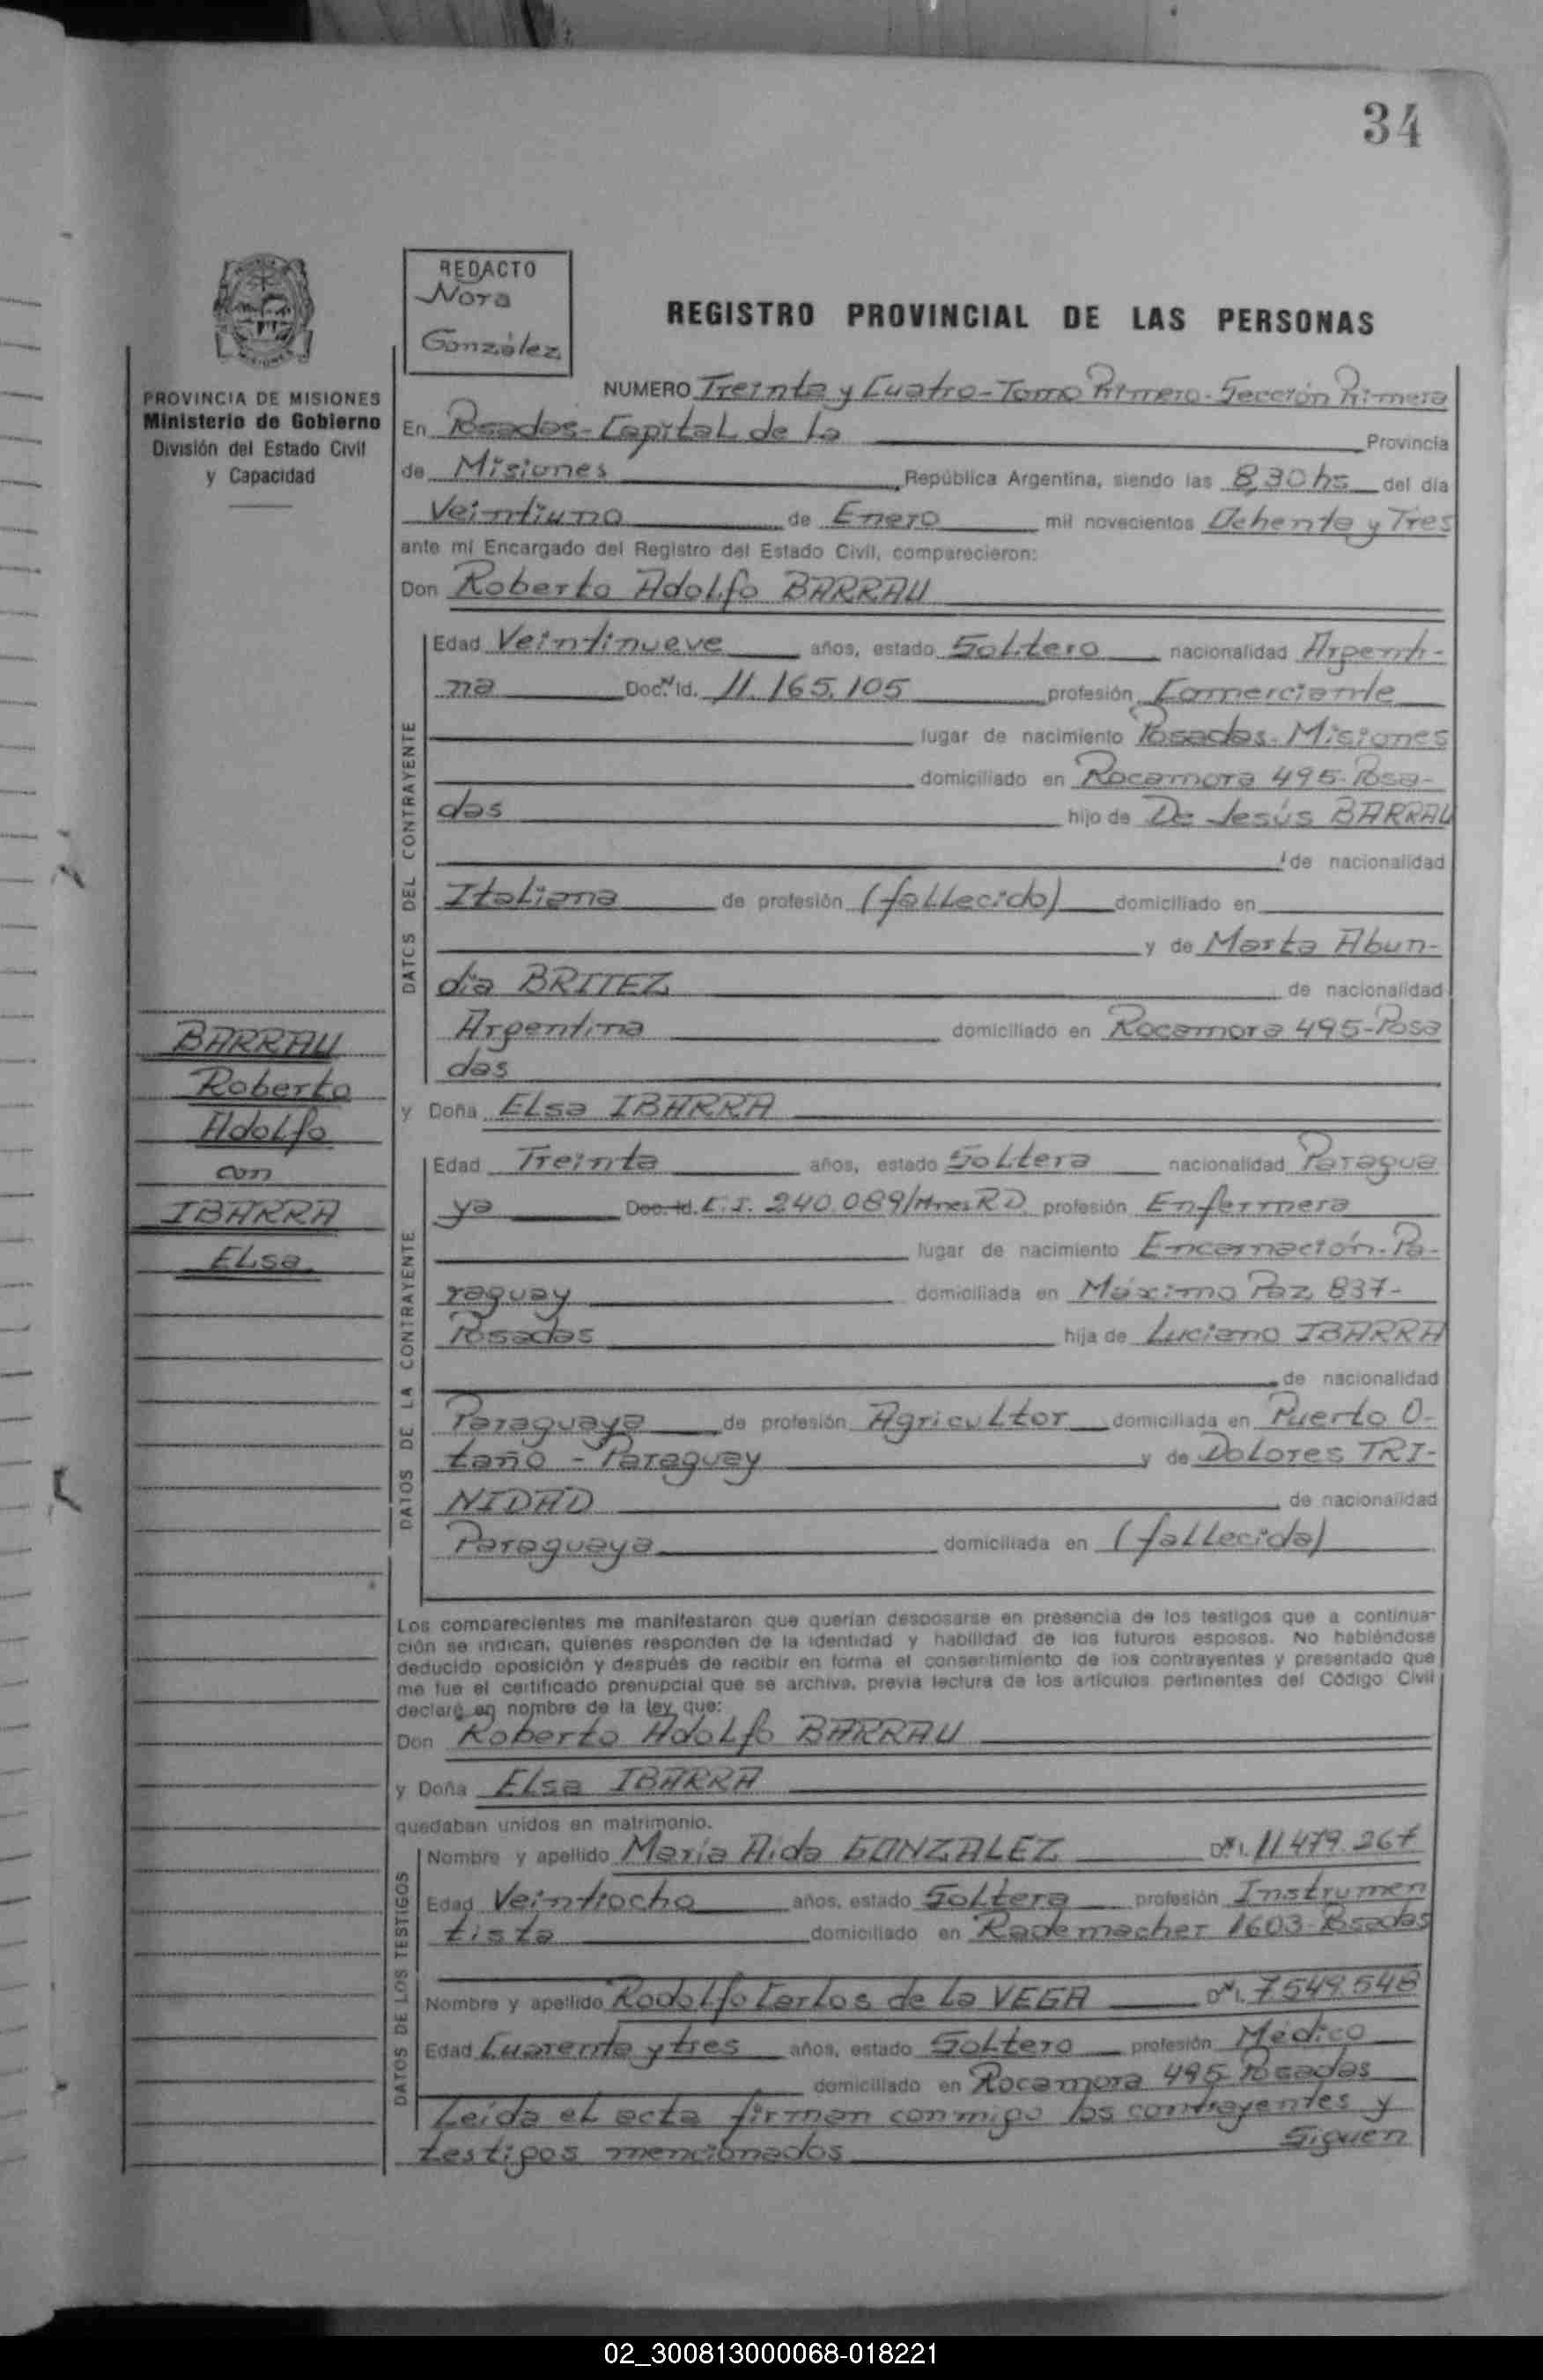 34
REDACTO
Nora
González
REGISTRO PROVINCIAL DE LAS PERSONAS
PROVINCIA DE MISIONES
Ministerio de Gobierno
División del Estado Civil
y Capacidad
NUMERO Treinta y Cuatro - Tomo Primero - Sección Primera
En Posadas - Capital de la Provincia
de Misiones República Argentina, siendo las 8,30 hs del día
Veintiuno de Enero mil novecientos Ochenta y Tres
ante mi Encargado del Registro del Estado Civil, comparecieron:
Don Roberto Adolfo BARRAU
DATOS DEL CONTRAYENTE
Edad Veintinueve años, estado Soltero nacionalidad Argenti-
na Doc. N. Id. 11.165.105 profesión Comerciante
lugar de nacimiento Posadas - Misiones
domiciliado en Rocamora 495 - Posa-
das hijo de De Jesús BARRAU
de nacionalidad
Italiana de profesión (fallecido) domiciliado en
y de Marta Abun-
dia BRITEZ de nacionalidad
Argentina domiciliado en Rocamora 495 - Posa
das
BARRAU
Roberto
Adolfo
con
IBARRA
Elsa
y Doña Elsa IBARRA
DATOS DE LA CONTRAYENTE
Edad Treinta años, estado Soltera nacionalidad Paragua
ya Doc. Id. C.I. 240.089/ R.D. profesión Enfermera
lugar de nacimiento Encarnación - Pa-
raguay domiciliada en Máximo Paz 837 -
Posadas hija de Luciano IBARRA
de nacionalidad
Paraguaya de profesión Agricultor domiciliada en Puerto O-
taño - Paraguay y de Dolores TRI-
NIDAD de nacionalidad
Paraguaya domiciliada en (fallecida)
Los comparecientes me manifestaron que querían desposarse en presencia de los testigos que a continua-
ción se indican, quienes responden de la identidad y habilidad de los futuros esposos. No habiéndose
deducido oposición y después de recibir en forma el consentimiento de los contrayentes y presentado que
me fue el certificado prenupcial que se archiva, previa lectura de los artículos pertinentes del Código Civil
declaré en nombre de la ley que:
Don Roberto Adolfo BARRAU
y Doña Elsa IBARRA
quedaban unidos en matrimonio.
DATOS DE LOS TESTIGOS
Nombre y apellido María Aida GONZALEZ DNI. 11479.267
Edad Veintiocho años, estado Soltera profesión Instrumen
tista domiciliado en Rademacher 1603 - Posadas
Nombre y apellido Rodolfo Carlos de la VEGA DNI. 7549.548
Edad Cuarenta y tres años, estado Soltero profesión Médico
domiciliado en Rocamora 495 Posadas
Leída el acta firman conmigo los contrayentes y
testigos mencionados Siguen
02_300813000068-018221